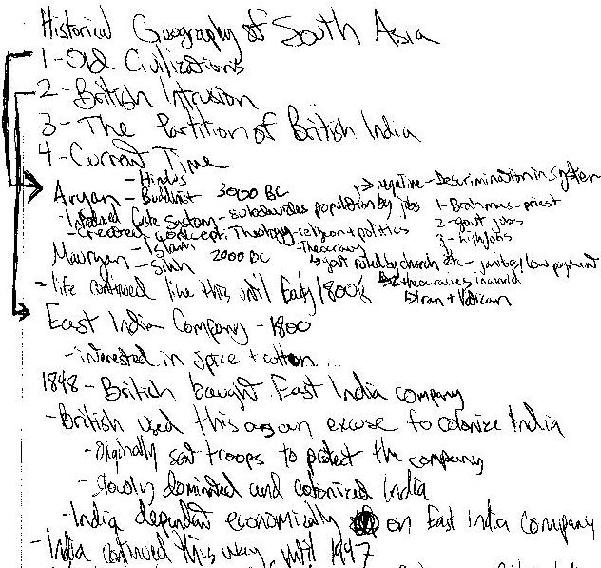 Historical Geography of South Asia
1 - Old Civilizations
2 - British Intrusion
3 - The Partition of British India
4 - Current Time
Aryan - Hindu
- Buddhist 3000 BC
-> negative - Descrimination in system
- Introduced Caste System - subdivides population by jobs
1 - Brahmins - priest
2 - govt jobs
3 - high jobs
- Created concept: Theology - religion + politics
- Theocracy
Mauryan - Islam
- Sikh 2000 BC
govt ruled by church
etc - janitor / low payment
2 theocracies in world
Iran + Vatican
- life continued like this until Early 1800's
East India Company - 1800
- interested in spice + cotton...
1848 - British bought East India company
- British used this as an excuse to colonize India
- originally sent troops to protect the company
- slowly dominated and colonized India
- India dependent economically on East India company
- India continued this way until 1947